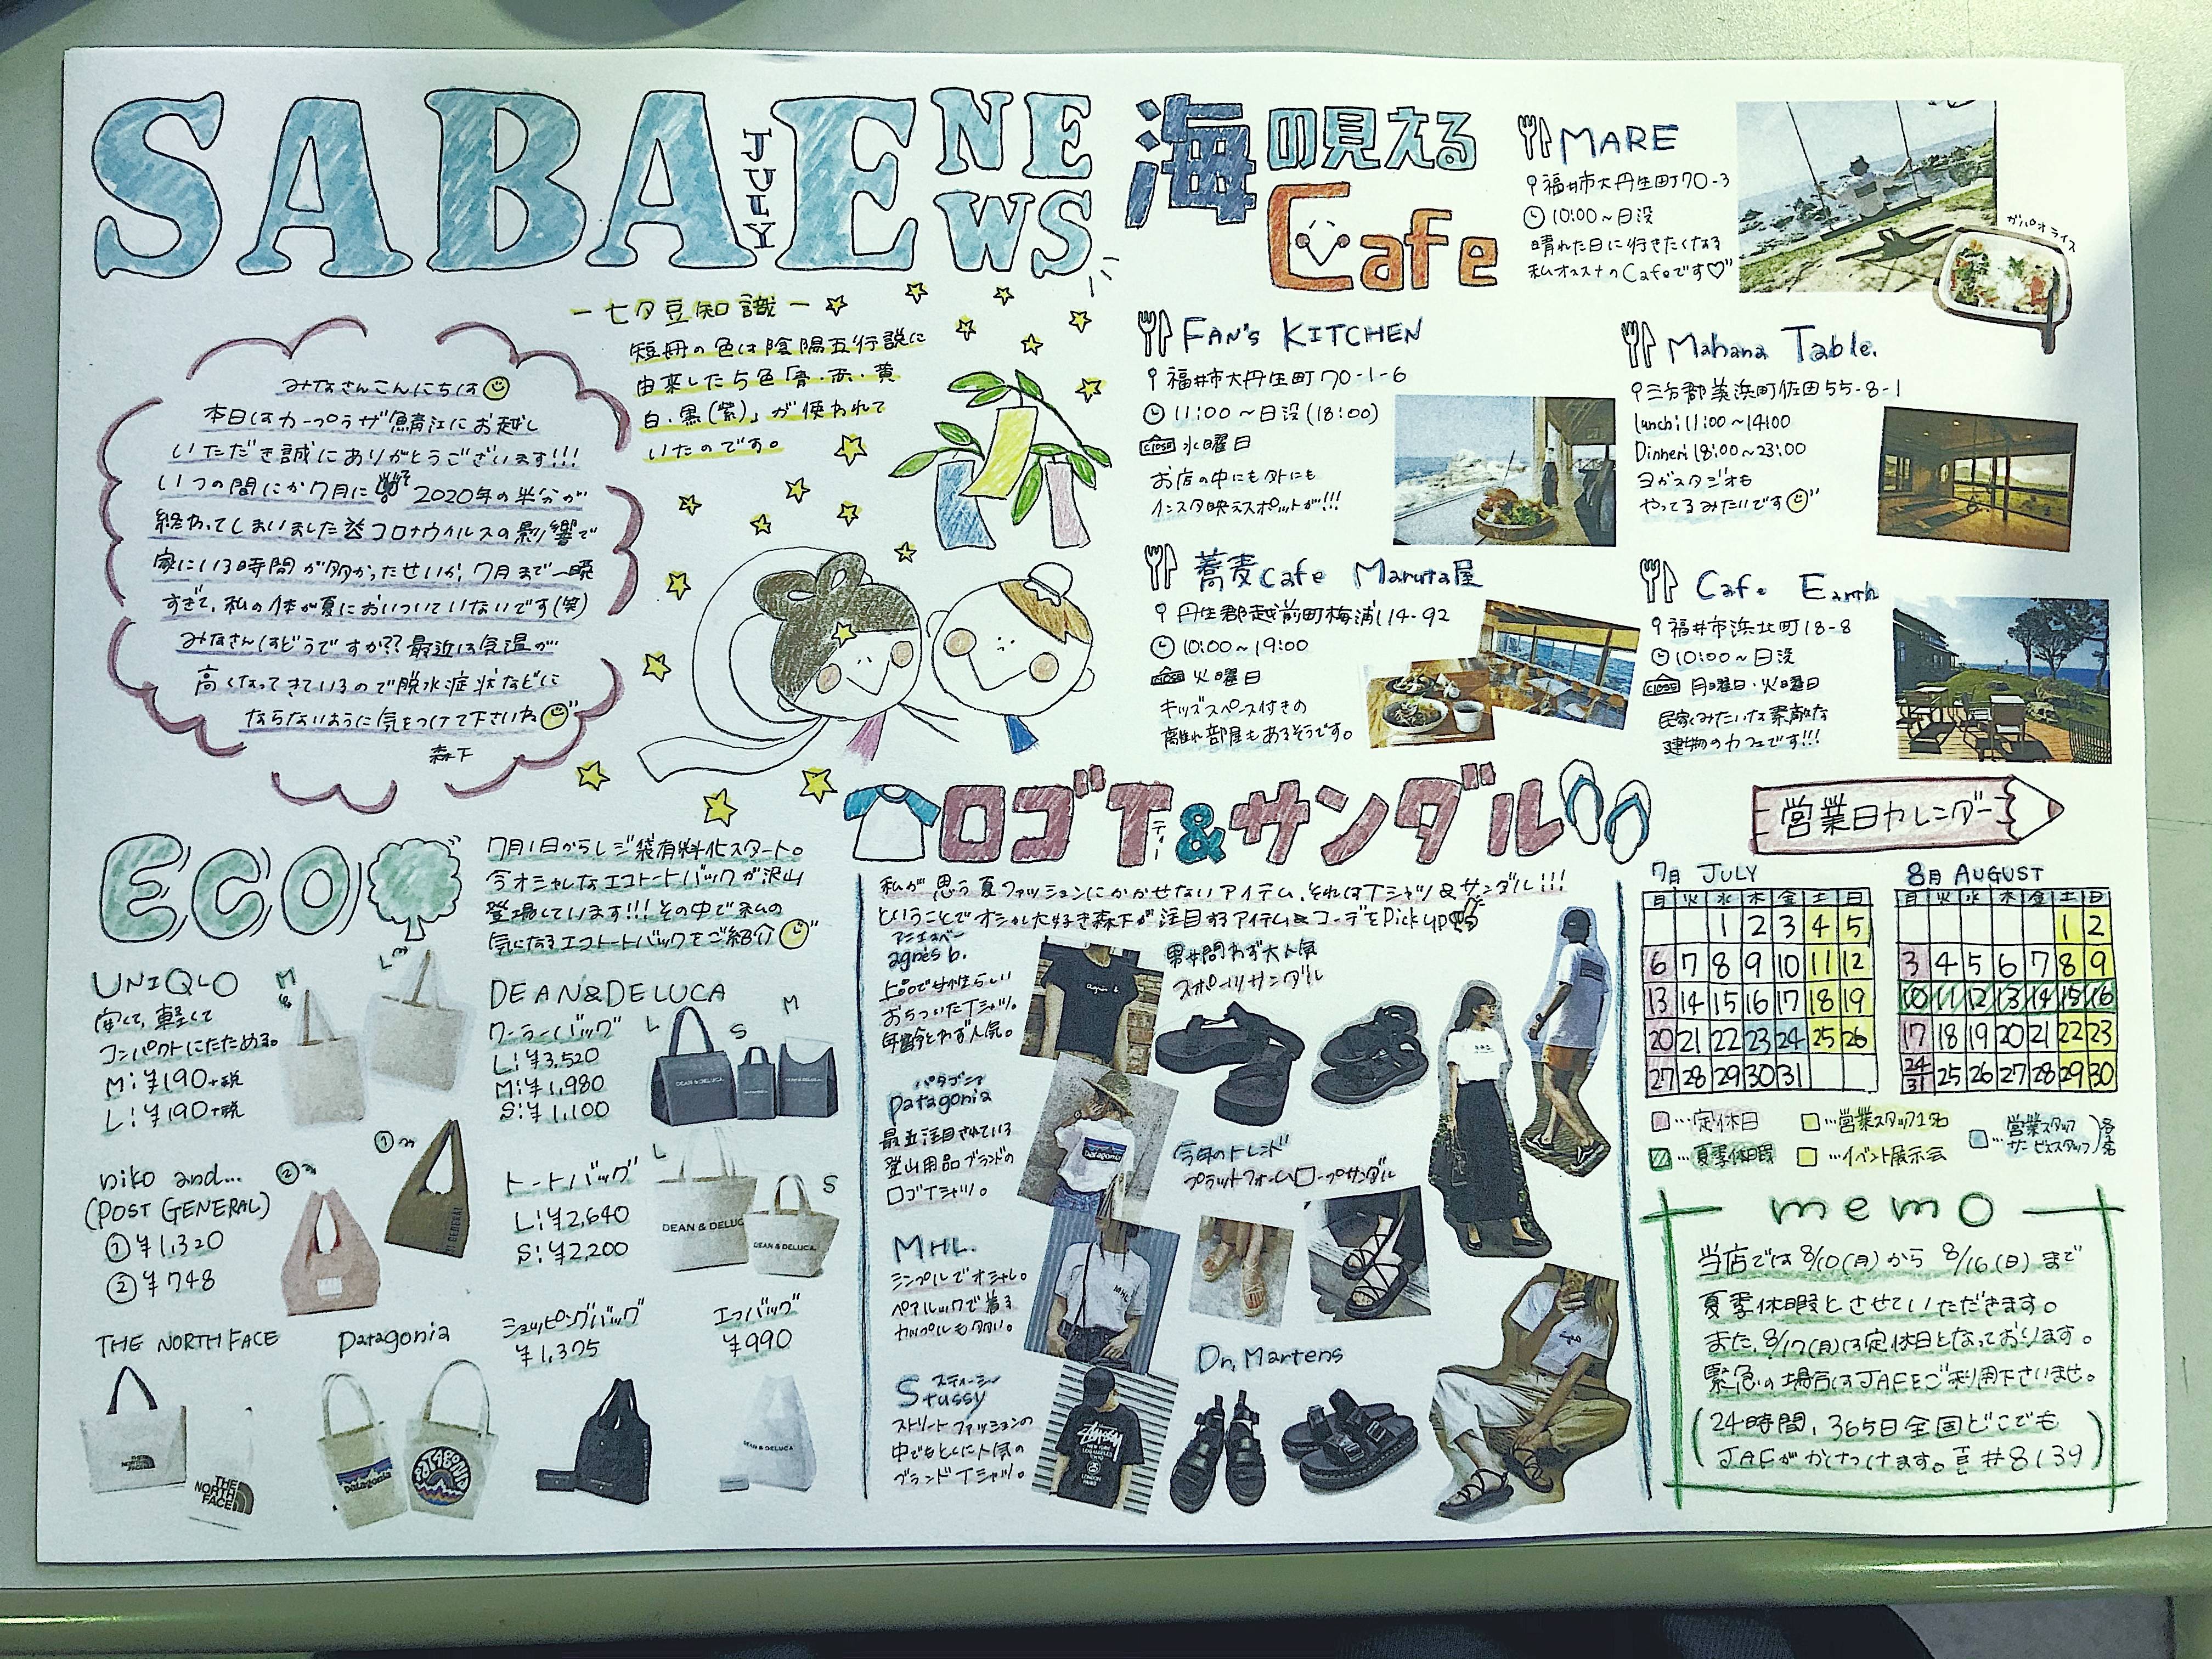 SABAE
JULY
NEWS
みなさんこんにちは
本日はカープラザ鯖江にお越し
いただき誠にありがとうございます!!!
いつの間にか7月に
2020年の半分が
終わってしまいました
コロナウイルスの影響で
家にいる時間が多かったせいか、7月まで一瞬
すぎて、私の体が夏においついていないです(笑)
みなさんはどうですか??最近は気温が
高くなってきているので脱水症状などに
ならないように気をつけて下さいね
森下
ー七夕豆知識ー
短冊の色は陰陽五行説に
由来した5色「青・赤・黄
白・黒(紫)」が使われて
いたのです。
海の見える
Cafe
MARE
福井市大丹生町70-3
10:00～日没
晴れた日に行きたくなる
私オススメのCafeです♡
ガパオライス
FAN'S KITCHEN
福井市大丹生町70-1-6
11:00～日没(18:00)
close 水曜日
お店の中にも外にも
インスタ映えスポットが!!!
Mahana Table.
三方郡美浜町佐田55-8-1
lunch:11:00～14:00
Dinner:18:00～23:00
ヨガスタジオも
やってるみたいです
蕎麦cafe Maruta屋
丹生郡越前町梅浦114-92
10:00～19:00
close 火曜日
キッズスペース付きの
離れ部屋もあるそうです。
Cafe Earth
福井市浜北町18-8
10:00～日没
close 月曜日・火曜日
民家みたいな素敵な
建物のカフェです!!!
ECO
7月1日からレジ袋有料化スタート。
今オシャレなエコトートバックが沢山
登場しています!!!その中で私の
気になるエコトートバックをご紹介
UNIQLO
安くて、軽くて
コンパクトにたためる。
M:¥190+税
L:¥190+税
M
L
niko and...
(POST GENERAL)
①¥1,320
②¥748
①
②
THE NORTH FACE
THE NORTH FACE
patagonia
patagonia
DEAN&DELUCA
クーラーバッグ
L:¥3,520
M:¥1,980
S:¥1,100
L
S
M
DEAN & DELUCA
トートバッグ
L:¥2,640
S:¥2,200
L
S
DEAN & DELUCA
DEAN & DELUCA
ショッピングバッグ
¥1,375
エコバッグ
¥990
DEAN & DELUCA
ロゴT&サンダル
ティー
私が思う夏ファッションにかかせないアイテム、それはTシャツ&サンダル!!!
ということでオシャレ大好き森下が注目するアイテム&コーデをPick up
アニエスベー
agnès b.
上品で女性らしい
おちついたTシャツ。
年齢とわず人気。
パタゴニア
patagonia
最近注目されている
登山用品ブランドの
ロゴTシャツ。
patagonia
MHL.
シンプルでオシャレ。
ペアルックで着る
カップルも多い。
MHL.
スティーシー
Stussy
ストリートファッションの
中でもとくに人気の
ブランドTシャツ。
男女問わず大人気
スポーツサンダル
今年のトレンド
プラットフォームロープサンダル
Dr. Martens
営業日カレンダー
7月 JULY
月 火 水 木 金 土 日
1 2 3 4 5
6 7 8 9 10 11 12
13 14 15 16 17 18 19
20 21 22 23 24 25 26
27 28 29 30 31
8月 AUGUST
月 火 水 木 金 土 日
1 2
3 4 5 6 7 8 9
10 11 12 13 14 15 16
17 18 19 20 21 22 23
24/31 25 26 27 28 29 30
…定休日
…営業スタッフ1名
…営業スタッフ
サービススタッフ)各1名
…夏季休暇
…イベント展示会
memo
当店では8/10(月)から8/16(日)まで
夏季休暇とさせていただきます。
また、8/17(月)は定休日となっております。
緊急の場合はJAFをご利用下さいませ。
(24時間、365日全国どこでも
JAFがかけつけます。#8139)